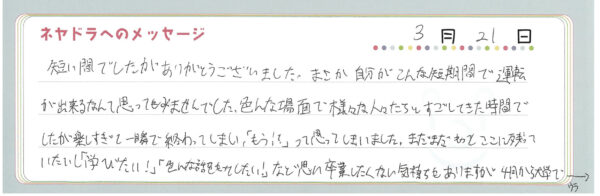 ネヤドラへのメッセージ
3月21日
短い間でしたがありがとうございました。まさか自分がこんな短期間で運転
が出来るなんて思ってもみませんでした。色んな場面で様々な人々たちとすごしてきた時間で
したが楽しすぎて一瞬で終わってしまい、「もう!?」って思ってしまいました。まだまだもっとここに残って
いたいし「学びたい!」「色んな話をもっとしたい!」など思い卒業したくない気持ちもありますが4月から大学で→